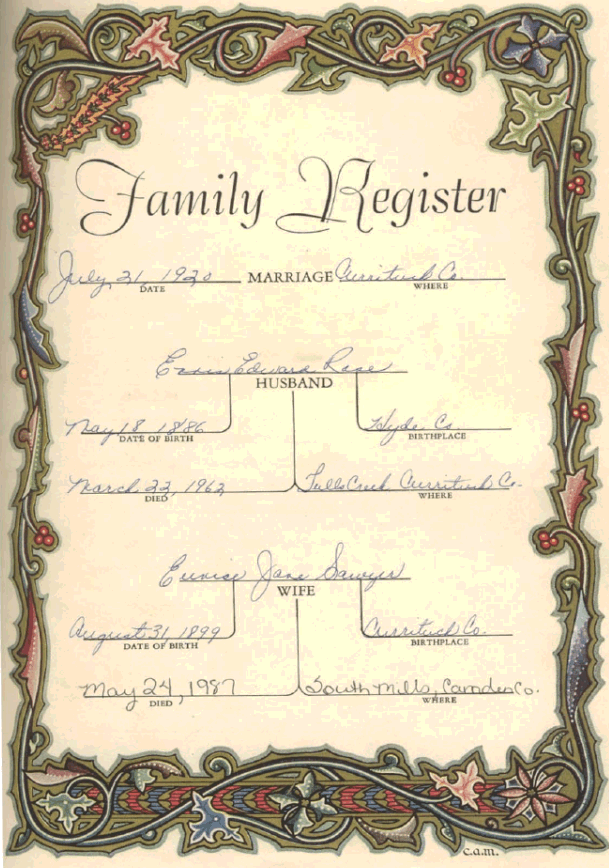 Family Register
July 21 1920 MARRIAGE Currituck Co.
DATE WHERE
Edward Rose
HUSBAND
May 18 1886 Hyde Co
DATE OF BIRTH BIRTHPLACE
March 22, 1962 Tulls Creek Currituck Co.
DIED WHERE
Eunice Jane Sawyer
WIFE
August 31, 1899 Currituck Co.
DATE OF BIRTH BIRTHPLACE
May 24, 1987 South Mills, Camden Co.
DIED WHERE
c.a.m.